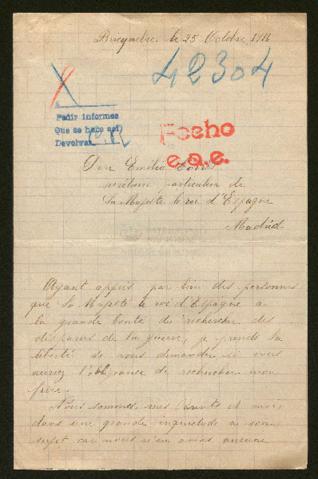 le 25 Octobre 1916
42304
Pedir informes
Que se hace así
Devolver
Fecho
e.a.e.
Don Emilio
particulier de
Sa Majesté le roi d'Espagne
Madrid
Ayant appris par bien des personnes
que Sa Majesté le roi d'Espagne a
la grande bonté de rechercher des
disparus de la guerre, je prends la
liberté de vous demander si vous
auriez l'obligeance de rechercher mon
père.
Nous sommes, mes et moi,
dans une grande inquiétude à son
sujet car nous n'en avons aucune